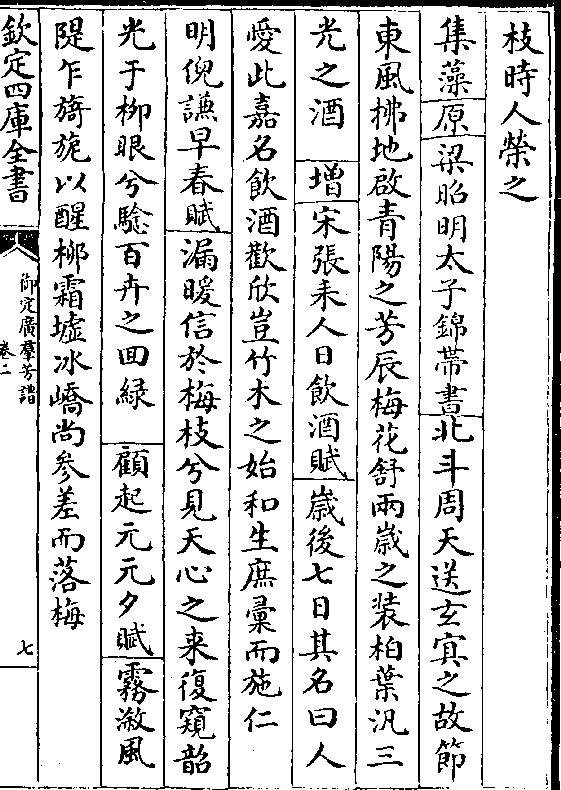 枝時人榮之
集藻原梁昭明太子錦帶書北斗周天送玄冥之故節
東風拂地啟青陽之芳辰梅花舒兩歲之装柏葉汎三
光之酒增宋張耒人日飲酒賦歲後七日其名曰人
愛此嘉名飲酒歡欣豈竹木之始和生庶彚而施仁
明倪謙早春賦漏暖信於梅枝兮見天心之来復窺韶
光于柳眼兮驗百卉之回緑顧起元元夕賦霧潋風
隄乍旖旎以醒柳霜墟冰嶠尚參差而落梅
欽定四庫全書
御定廣羣芳譜
卷二
七